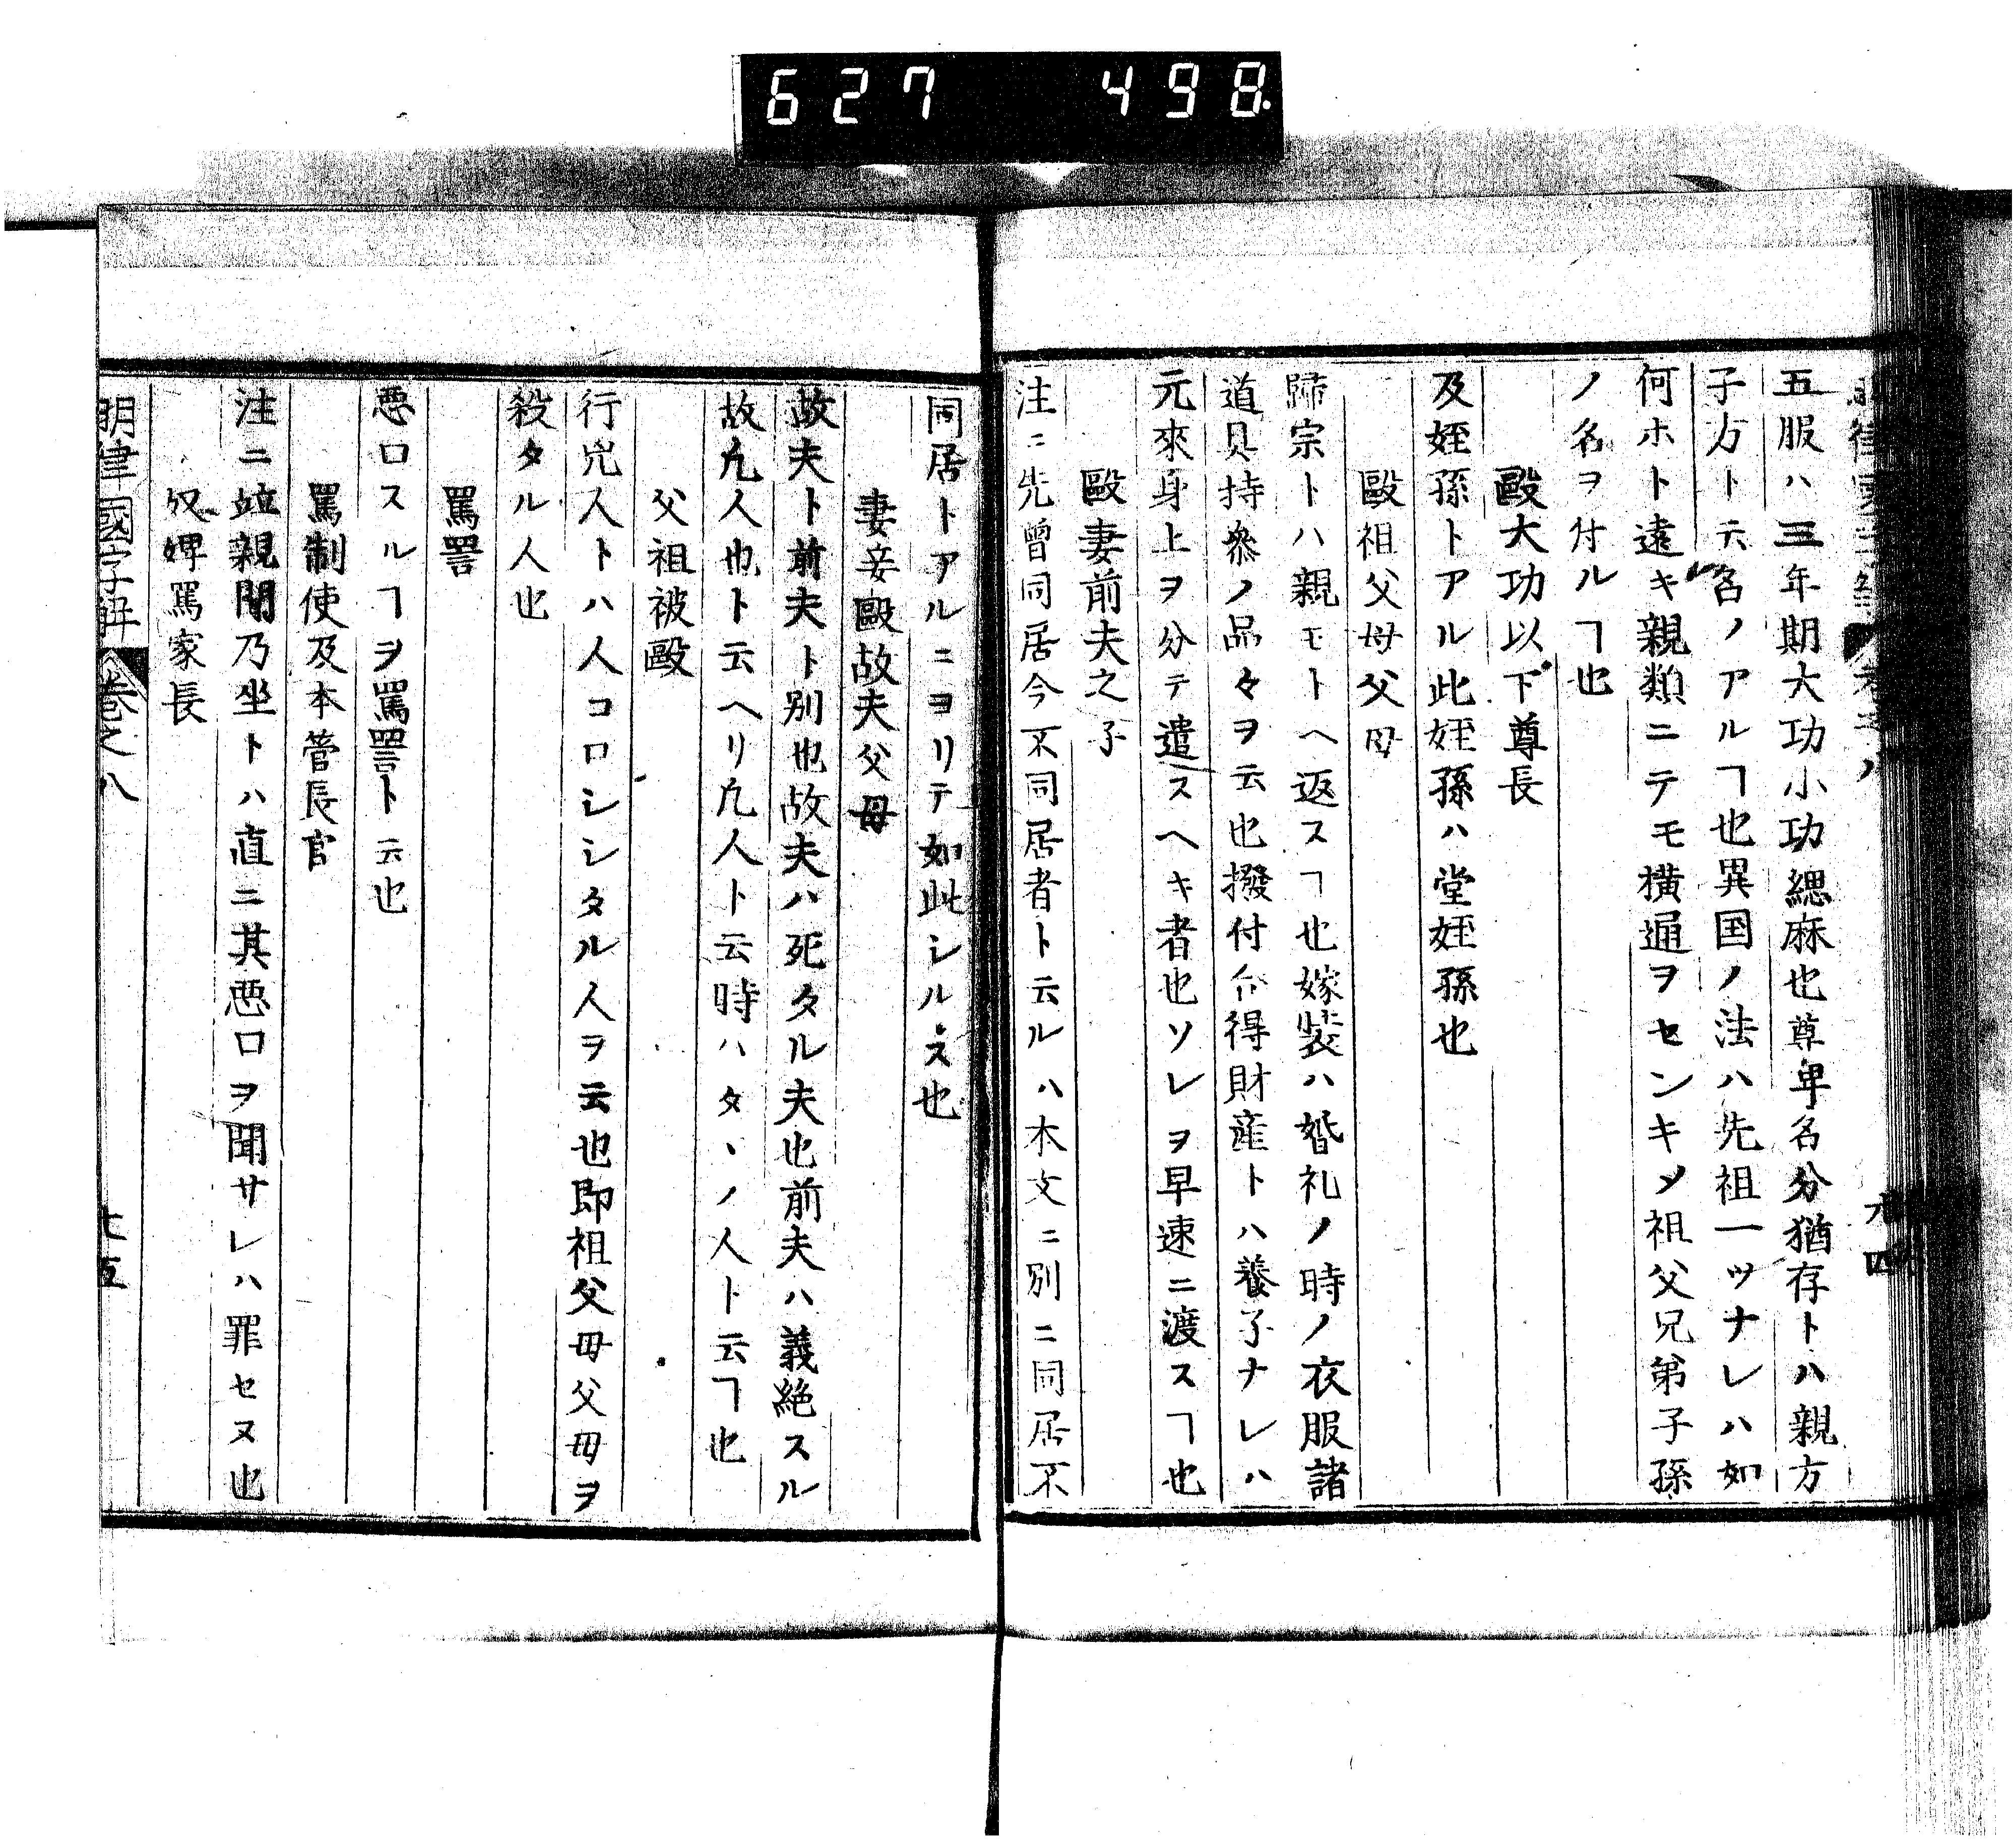 627 498
五服ハ三年期大功小功緦麻也尊卑名分猶存トハ親方
子方ト云名ノアルヿ也異国ノ法ハ先祖一ツナレハ如
何ホト遠キ親類ニテモ横通ヲセンキソ祖父兄弟子孫
ノ名ヲ付ルヿ也
毆大功以下尊長
及姪孫トアル此姪孫ハ堂姪孫也
毆祖父母父母
歸宗トハ親モトヘ返スヿ也嫁装ハ婚礼ノ時ノ衣服諸
道具持參ノ品々ヲ云也撥付合得財産トハ養子ナレハ
元來身上ヲ分テ遣スヘキ者也ソレヲ早速ニ渡スヿ也
毆妻前夫之子
注ニ先曾同居今不同居者ト云ルハ本文ニ別ニ同居不
同居トアルニヨリテ如此シルス也
妻妾毆故夫父母
故夫ト前夫ト別也故夫ハ死タル夫也前夫ハ義絶スル
故凢人也ト云ヘリ凢人ト云時ハタヽノ人ト云ヿ也
父祖被毆
行兇人トハ人コロシシタル人ヲ云也即祖父母父母ヲ
殺タル人也
罵詈
悪口スルヿヲ罵詈ト云也
罵制使及本管長官
注ニ竝親聞乃坐トハ直ニ其悪口ヲ聞サレハ罪セヌ也
奴婢罵家長
明律國字解 卷之八 七五